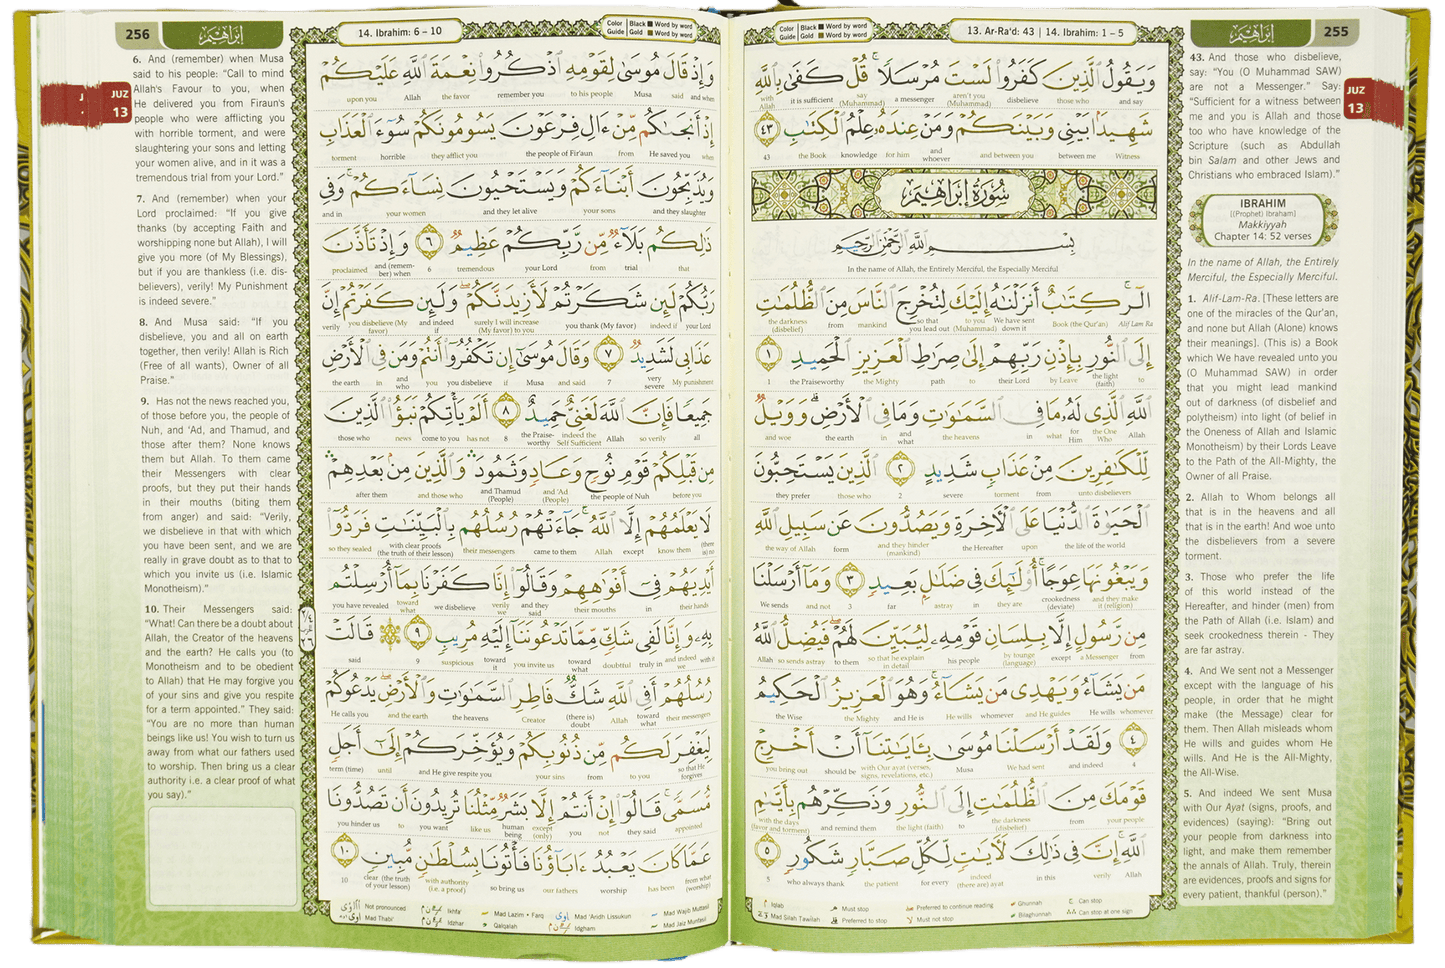 13. Ar-Ra'd: 43 | 14. Ibrahim: 1 – 5
إبراهيم
255
JUZ
13
Color Guide
Black ■ Word by word
Gold ■ Word by word
وَيَقُولُ الَّذِينَ كَفَرُوا لَسْتَ مُرْسَلًا ۚ قُلْ كَفَىٰ بِاللَّهِ
and say those who disbelieve aren't you (Muhammad) a messenger say (Muhammad) it is sufficient with Allah
شَهِيدًا بَيْنِي وَبَيْنَكُمْ وَمَنْ عِندَهُ عِلْمُ الْكِتَابِ ٤٣
Witness between me and between you and whoever for him knowledge the Book 43
سُورَةُ إِبْرَاهِيمَ
بِسْمِ اللَّهِ الرَّحْمَٰنِ الرَّحِيمِ
In the name of Allah, the Entirely Merciful, the Especially Merciful
الر ۚ كِتَابٌ أَنزَلْنَاهُ إِلَيْكَ لِتُخْرِجَ النَّاسَ مِنَ الظُّلُمَاتِ
Alif Lam Ra Book (the Qur'an) We have sent down it to you (Muhammad) so that you lead out mankind from the darkness (disbelief)
إِلَى النُّورِ بِإِذْنِ رَبِّهِمْ إِلَىٰ صِرَاطِ الْعَزِيزِ الْحَمِيدِ ١
to the light (faith) by Leave their Lord to path the Mighty the Praiseworthy 1
اللَّهِ الَّذِي لَهُ مَا فِي السَّمَاوَاتِ وَمَا فِي الْأَرْضِ ۗ وَوَيْلٌ
Allah the One Who for Him what in the heavens and what in the earth and woe
لِّلْكَافِرِينَ مِنْ عَذَابٍ شَدِيدٍ ٢ الَّذِينَ يَسْتَحِبُّونَ
unto disbelievers from torment severe 2 those who they prefer
الْحَيَاةَ الدُّنْيَا عَلَى الْآخِرَةِ وَيَصُدُّونَ عَن سَبِيلِ اللَّهِ
the life of the world upon the Hereafter and they hinder (mankind) form the way of Allah
وَيَبْغُونَهَا عِوَجًا ۚ أُولَٰئِكَ فِي ضَلَالٍ بَعِيدٍ ٣ وَمَا أَرْسَلْنَا
and they make it (religion) crookedness (deviate) they are in astray far 3 and not We sends
مِن رَّسُولٍ إِلَّا بِلِسَانِ قَوْمِهِ لِيُبَيِّنَ لَهُمْ ۖ فَيُضِلُّ اللَّهُ
from a Messenger except by lounge (language) his people so that he explain in detail to them so sends astray Allah
مَن يَشَاءُ وَيَهْدِي مَن يَشَاءُ ۚ وَهُوَ الْعَزِيزُ الْحَكِيمُ
whomever He wills and He guides whomever He wills and He is the Mighty the Wise
٤ وَلَقَدْ أَرْسَلْنَا مُوسَىٰ بِآيَاتِنَا أَنْ أَخْرِجْ
4 and indeed We had sent Musa with Our ayat (verses, signs, revelations, etc.) should be you bring out
قَوْمَكَ مِنَ الظُّلُمَاتِ إِلَى النُّورِ وَذَكِّرْهُم بِأَيَّامِ
your people from the darkness (disbelief) to the light (faith) and remind them with the days (favor and torment)
اللَّهِ ۚ إِنَّ فِي ذَٰلِكَ لَآيَاتٍ لِّكُلِّ صَبَّارٍ شَكُورٍ ٥
Allah verily in this indeed (there are) ayat for every the patient who always thank 5
Iqlab
Must stop
Preferred to continue reading
Ghunnah
Can stop
Mad Silah Tawilah
Preferred to stop
Must not stop
Bilaghunnah
Can stop at one sign
43. And those who disbelieve,
say: "You (O Muhammad SAW)
are not a Messenger." Say:
"Sufficient for a witness between
me and you is Allah and those
too who have knowledge of the
Scripture (such as Abdullah
bin Salam and other Jews and
Christians who embraced Islam)."
IBRAHIM
[(Prophet) Ibraham]
Makkiyyah
Chapter 14: 52 verses
In the name of Allah, the Entirely
Merciful, the Especially Merciful.
1. Alif-Lam-Ra. [These letters are
one of the miracles of the Qur'an,
and none but Allah (Alone) knows
their meanings]. (This is) a Book
which We have revealed unto you
(O Muhammad SAW) in order
that you might lead mankind
out of darkness (of disbelief and
polytheism) into light (of belief in
the Oneness of Allah and Islamic
Monotheism) by their Lords Leave
to the Path of the All-Mighty, the
Owner of all Praise.
2. Allah to Whom belongs all
that is in the heavens and all
that is in the earth! And woe unto
the disbelievers from a severe
torment.
3. Those who prefer the life
of this world instead of the
Hereafter, and hinder (men) from
the Path of Allah (i.e. Islam) and
seek crookedness therein - They
are far astray.
4. And We sent not a Messenger
except with the language of his
people, in order that he might
make (the Message) clear for
them. Then Allah misleads whom
He wills and guides whom He
wills. And He is the All-Mighty,
the All-Wise.
5. And indeed We sent Musa
with Our Ayat (signs, proofs, and
evidences) (saying): "Bring out
your people from darkness into
light, and make them remember
the annals of Allah. Truly, therein
are evidences, proofs and signs for
every patient, thankful (person)."
256
إبراهيم
14. Ibrahim: 6 – 10
Color Guide
Black ■ Word by word
Gold ■ Word by word
JUZ
13
وَإِذْ قَالَ مُوسَىٰ لِقَوْمِهِ اذْكُرُوا نِعْمَةَ اللَّهِ عَلَيْكُمْ
and when said Musa to his people remember you the favor Allah upon you
إِذْ أَنجَاكُم مِّنْ آلِ فِرْعَوْنَ يَسُومُونَكُمْ سُوءَ الْعَذَابِ
when He saved you from the people of Fir'aun they afflict you horrible torment
وَيُذَبِّحُونَ أَبْنَاءَكُمْ وَيَسْتَحْيُونَ نِسَاءَكُمْ ۚ وَفِي
and they slaughter your sons and they let alive your women and in
ذَٰلِكُم بَلَاءٌ مِّن رَّبِّكُمْ عَظِيمٌ ٦ وَإِذْ تَأَذَّنَ
that trial from your Lord tremendous 6 and (remember) when proclaimed
رَبُّكُمْ لَئِن شَكَرْتُمْ لَأَزِيدَنَّكُمْ ۖ وَلَئِن كَفَرْتُمْ إِنَّ
your Lord indeed if you thank (My favor) surely I will increase (My favor) to you and indeed if you disbelieve (My favor) verily
عَذَابِي لَشَدِيدٌ ٧ وَقَالَ مُوسَىٰ إِن تَكْفُرُوا أَنتُمْ وَمَن فِي الْأَرْضِ
My punishment very severe 7 and said Musa if you disbelieve you and who in the earth
جَمِيعًا فَإِنَّ اللَّهَ لَغَنِيٌّ حَمِيدٌ ٨ أَلَمْ يَأْتِكُمْ نَبَأُ الَّذِينَ
all so verily Allah indeed the Self Sufficient the Praiseworthy 8 has not come to you news those who
مِن قَبْلِكُمْ قَوْمِ نُوحٍ وَعَادٍ وَثَمُودَ ۛ وَالَّذِينَ مِن بَعْدِهِمْ ۛ
before you the people of Nuh and 'Ad (People) and Thamud (People) and those who after them
لَا يَعْلَمُهُمْ إِلَّا اللَّهُ ۚ جَاءَتْهُمْ رُسُلُهُم بِالْبَيِّنَاتِ فَرَدُّوا
(there is) no know them except Allah came to them their messengers with clear proofs (the truth of their lesson) so they sealed
أَيْدِيَهُمْ فِي أَفْوَاهِهِمْ وَقَالُوا إِنَّا كَفَرْنَا بِمَا أُرْسِلْتُم
their hands in their mouths and they said verily we we disbelieve toward what you have revealed
بِهِ وَإِنَّا لَفِي شَكٍّ مِّمَّا تَدْعُونَنَا إِلَيْهِ مُرِيبٍ ٩ قَالَتْ
with it and indeed we truly in doubtful toward what you invite us toward it suspicious 9 said
رُسُلُهُمْ أَفِي اللَّهِ شَكٌّ فَاطِرِ السَّمَاوَاتِ وَالْأَرْضِ ۖ يَدْعُوكُمْ
their messengers toward what Allah (there is) doubt Creator the heavens and the earth He calls you
لِيَغْفِرَ لَكُم مِّن ذُنُوبِكُمْ وَيُؤَخِّرَكُمْ إِلَىٰ أَجَلٍ
so that He forgives to you from your sins and He give respite you until term (time)
مُّسَمًّى ۚ قَالُوا إِنْ أَنتُمْ إِلَّا بَشَرٌ مِّثْلُنَا تُرِيدُونَ أَن تَصُدُّونَا
appointed they said not you except (only) human being like us you want to you hinder us
عَمَّا كَانَ يَعْبُدُ آبَاؤُنَا فَأْتُونَا بِسُلْطَانٍ مُّبِينٍ ١٠
from what (worship) has been worship our fathers so bring us with authority (i.e. a proof) clear (the truth of your lesson) 10
Not pronounced
Ikhfa'
Mad Lazim • Farq
Mad 'Aridh Lissukun
Mad Wajib Muttasil
Mad Thabi'
Idzhar
Qalqalah
Idgham
Mad Jaiz Munfasil
6. And (remember) when Musa
said to his people: "Call to mind
Allah's Favour to you, when
He delivered you from Firaun's
people who were afflicting you
with horrible torment, and were
slaughtering your sons and letting
your women alive, and in it was a
tremendous trial from your Lord."
7. And (remember) when your
Lord proclaimed: "If you give
thanks (by accepting Faith and
worshipping none but Allah), I will
give you more (of My Blessings),
but if you are thankless (i.e. dis-
believers), verily! My Punishment
is indeed severe."
8. And Musa said: "If you
disbelieve, you and all on earth
together, then verily! Allah is Rich
(Free of all wants), Owner of all
Praise."
9. Has not the news reached you,
of those before you, the people of
Nuh, and 'Ad, and Thamud, and
those after them? None knows
them but Allah. To them came
their Messengers with clear
proofs, but they put their hands
in their mouths (biting them
from anger) and said: "Verily,
we disbelieve in that with which
you have been sent, and we are
really in grave doubt as to that to
which you invite us (i.e. Islamic
Monotheism)."
10. Their Messengers said:
"What! Can there be a doubt about
Allah, the Creator of the heavens
and the earth? He calls you (to
Monotheism and to be obedient
to Allah) that He may forgive you
of your sins and give you respite
for a term appointed." They said:
"You are no more than human
beings like us! You wish to turn us
away from what our fathers used
to worship. Then bring us a clear
authority i.e. a clear proof of what
you say)."